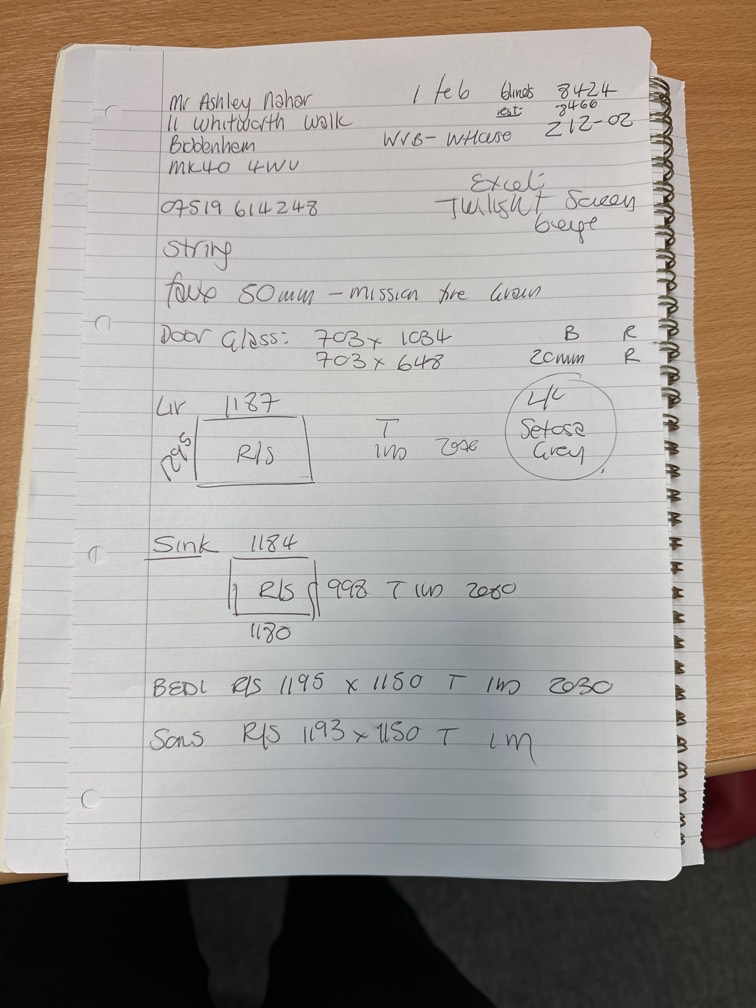 Mr Ashley Nahar 1 feb blinds 8424
11 Whitworth Walk est: 8466
Biddenham WVB - WHouse 212-02
MK40 4WU
Excel;
07519 614248 Twilight Screen
Beige
String
faux 50mm - mission fire Grain
Door Glass: 703 x 1034 B R
703 x 648 20mm R
LIV 1187 L/L
1295 R/S T Setosa
Grey
Sink 1184
R/S 998 T
1180
BED1 R/S 1195 x 1150 T 2030
Sons R/S 1193 x 1150 T 1M